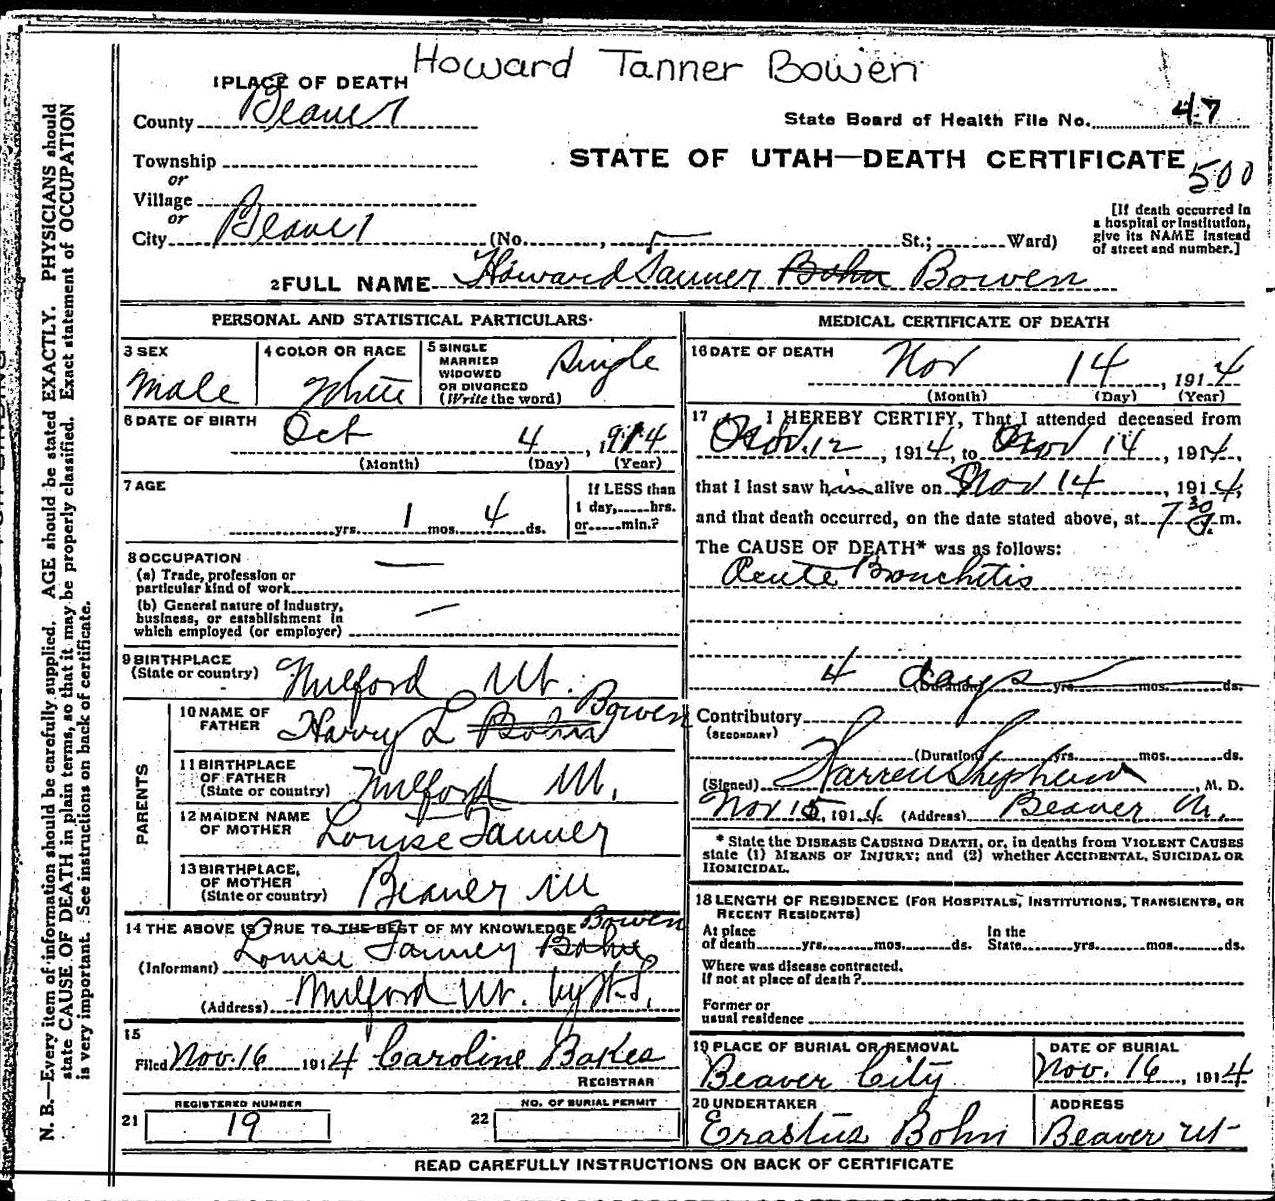 Howard Tanner Bowen
1 PLACE OF DEATH
County Beaver
State Board of Health File No. 47
Township
STATE OF UTAH—DEATH CERTIFICATE
500
or
Village
or
City Beaver (No. , St.; Ward)
[If death occurred in
a hospital or institution,
give its NAME instead
of street and number.]
2 FULL NAME Howard Tanner Bohn Bowen
PERSONAL AND STATISTICAL PARTICULARS
3 SEX
Male
4 COLOR OR RACE
White
5 SINGLE
MARRIED
WIDOWED
OR DIVORCED
(Write the word)
Single
6 DATE OF BIRTH
Oct 4, 1914
(Month) (Day) (Year)
7 AGE
yrs. 1 mos. 4 ds.
If LESS than
1 day, hrs.
or min.?
8 OCCUPATION
(a) Trade, profession or
particular kind of work —
(b) General nature of industry,
business, or establishment in
which employed (or employer) —
9 BIRTHPLACE
(State or country) Milford Ut.
PARENTS
10 NAME OF
FATHER Harry L Bohn Bowen
11 BIRTHPLACE
OF FATHER
(State or country) Milford Ut.
12 MAIDEN NAME
OF MOTHER Louise Tanner
13 BIRTHPLACE,
OF MOTHER
(State or country) Beaver Ut
14 THE ABOVE IS TRUE TO THE BEST OF MY KNOWLEDGE
(Informant) Louise Tanner Bohn Bowen
(Address) Milford Ut. by W.S.
15
Filed Nov. 16 1914 Caroline Bakes
REGISTRAR
REGISTERED NUMBER
21 19
NO. OF BURIAL PERMIT
22
MEDICAL CERTIFICATE OF DEATH
16 DATE OF DEATH
Nov 14, 1914
(Month) (Day) (Year)
17 I HEREBY CERTIFY, That I attended deceased from
Nov. 12, 1914, to Nov 14, 1914,
that I last saw him alive on Nov 14, 1914,
and that death occurred, on the date stated above, at 7 30 m.
The CAUSE OF DEATH* was as follows:
Acute Bronchitis
4 days
(Duration) yrs. mos. ds.
Contributory
(SECONDARY)
(Duration) yrs. mos. ds.
(Signed) Warren Shepherd, M. D.
Nov 15, 1914 (Address) Beaver Ut.
* State the DISEASE CAUSING DEATH, or, in deaths from VIOLENT CAUSES
state (1) MEANS OF INJURY; and (2) whether ACCIDENTAL, SUICIDAL OR
HOMICIDAL.
18 LENGTH OF RESIDENCE (FOR HOSPITALS, INSTITUTIONS, TRANSIENTS, OR
RECENT RESIDENTS)
At place
of death yrs. mos. ds.
In the
State yrs. mos. ds.
Where was disease contracted,
If not at place of death?
Former or
usual residence
19 PLACE OF BURIAL OR REMOVAL
Beaver City
DATE OF BURIAL
Nov. 16, 1914
20 UNDERTAKER
Erastus Bohn
ADDRESS
Beaver Ut
READ CAREFULLY INSTRUCTIONS ON BACK OF CERTIFICATE
N. B.—Every item of information should be carefully supplied. AGE should be stated EXACTLY. PHYSICIANS should
state CAUSE OF DEATH in plain terms, so that it may be properly classified. Exact statement of OCCUPATION
is very important. See instructions on back of certificate.